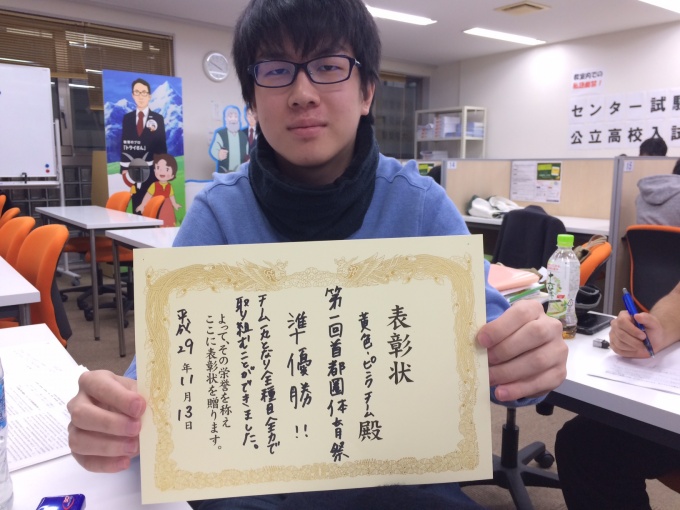 表彰状
黄色ピラニアチーム殿
第一回首都圏体育祭
準優勝!!
チーム一丸となり全種目全力で
取り組むことができました。
よって、その栄誉を称え
ここに表彰状を贈ります。
平成29年11月13日
センター試験
公立高校入試
教室内での